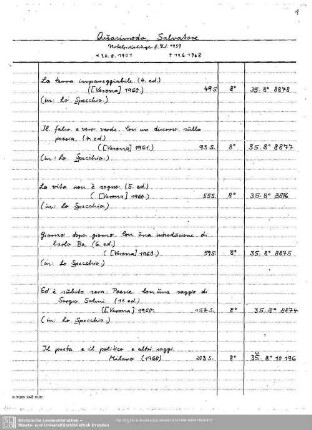 Quasimodo, Salvatore
Nobelpreisträger f. Lit. 1959
* 20. 8. 1901 † 14.6.1968
La terra impareggiabile (4. ed.)
([Verona] 1960.) 49 S. 8° 35. 8° 8878
(in: Lo Specchio)
Il falso e vero verde. Con un discorso sulla
poesia. (4. ed.)
([Verona] 1961.) 93 S. 8° 35. 8° 8877
(in: Lo Specchio.)
La vita non è sogno. (5. ed.)
([Verona] 1960.) 55 S. 8° 35. 8° 8876
(in: Lo Specchio)
Giorno dopo giorno. Con una introduzione di
Carlo Bo. (6. ed.)
([Verona] 1960.) 59 S. 8° 35. 8° 8875
(in: Lo Specchio)
Ed è subito sera. Poesie. Con una saggio di
Sergio Solmi (11. ed.)
([Verona] 1960.) 157 S. 8° 35. 8° 8874
(in: Lo Specchio.)
Il poeta e il politico e altri saggi.
Milano (1960) 203 S. 8° 35. 8° 10 196